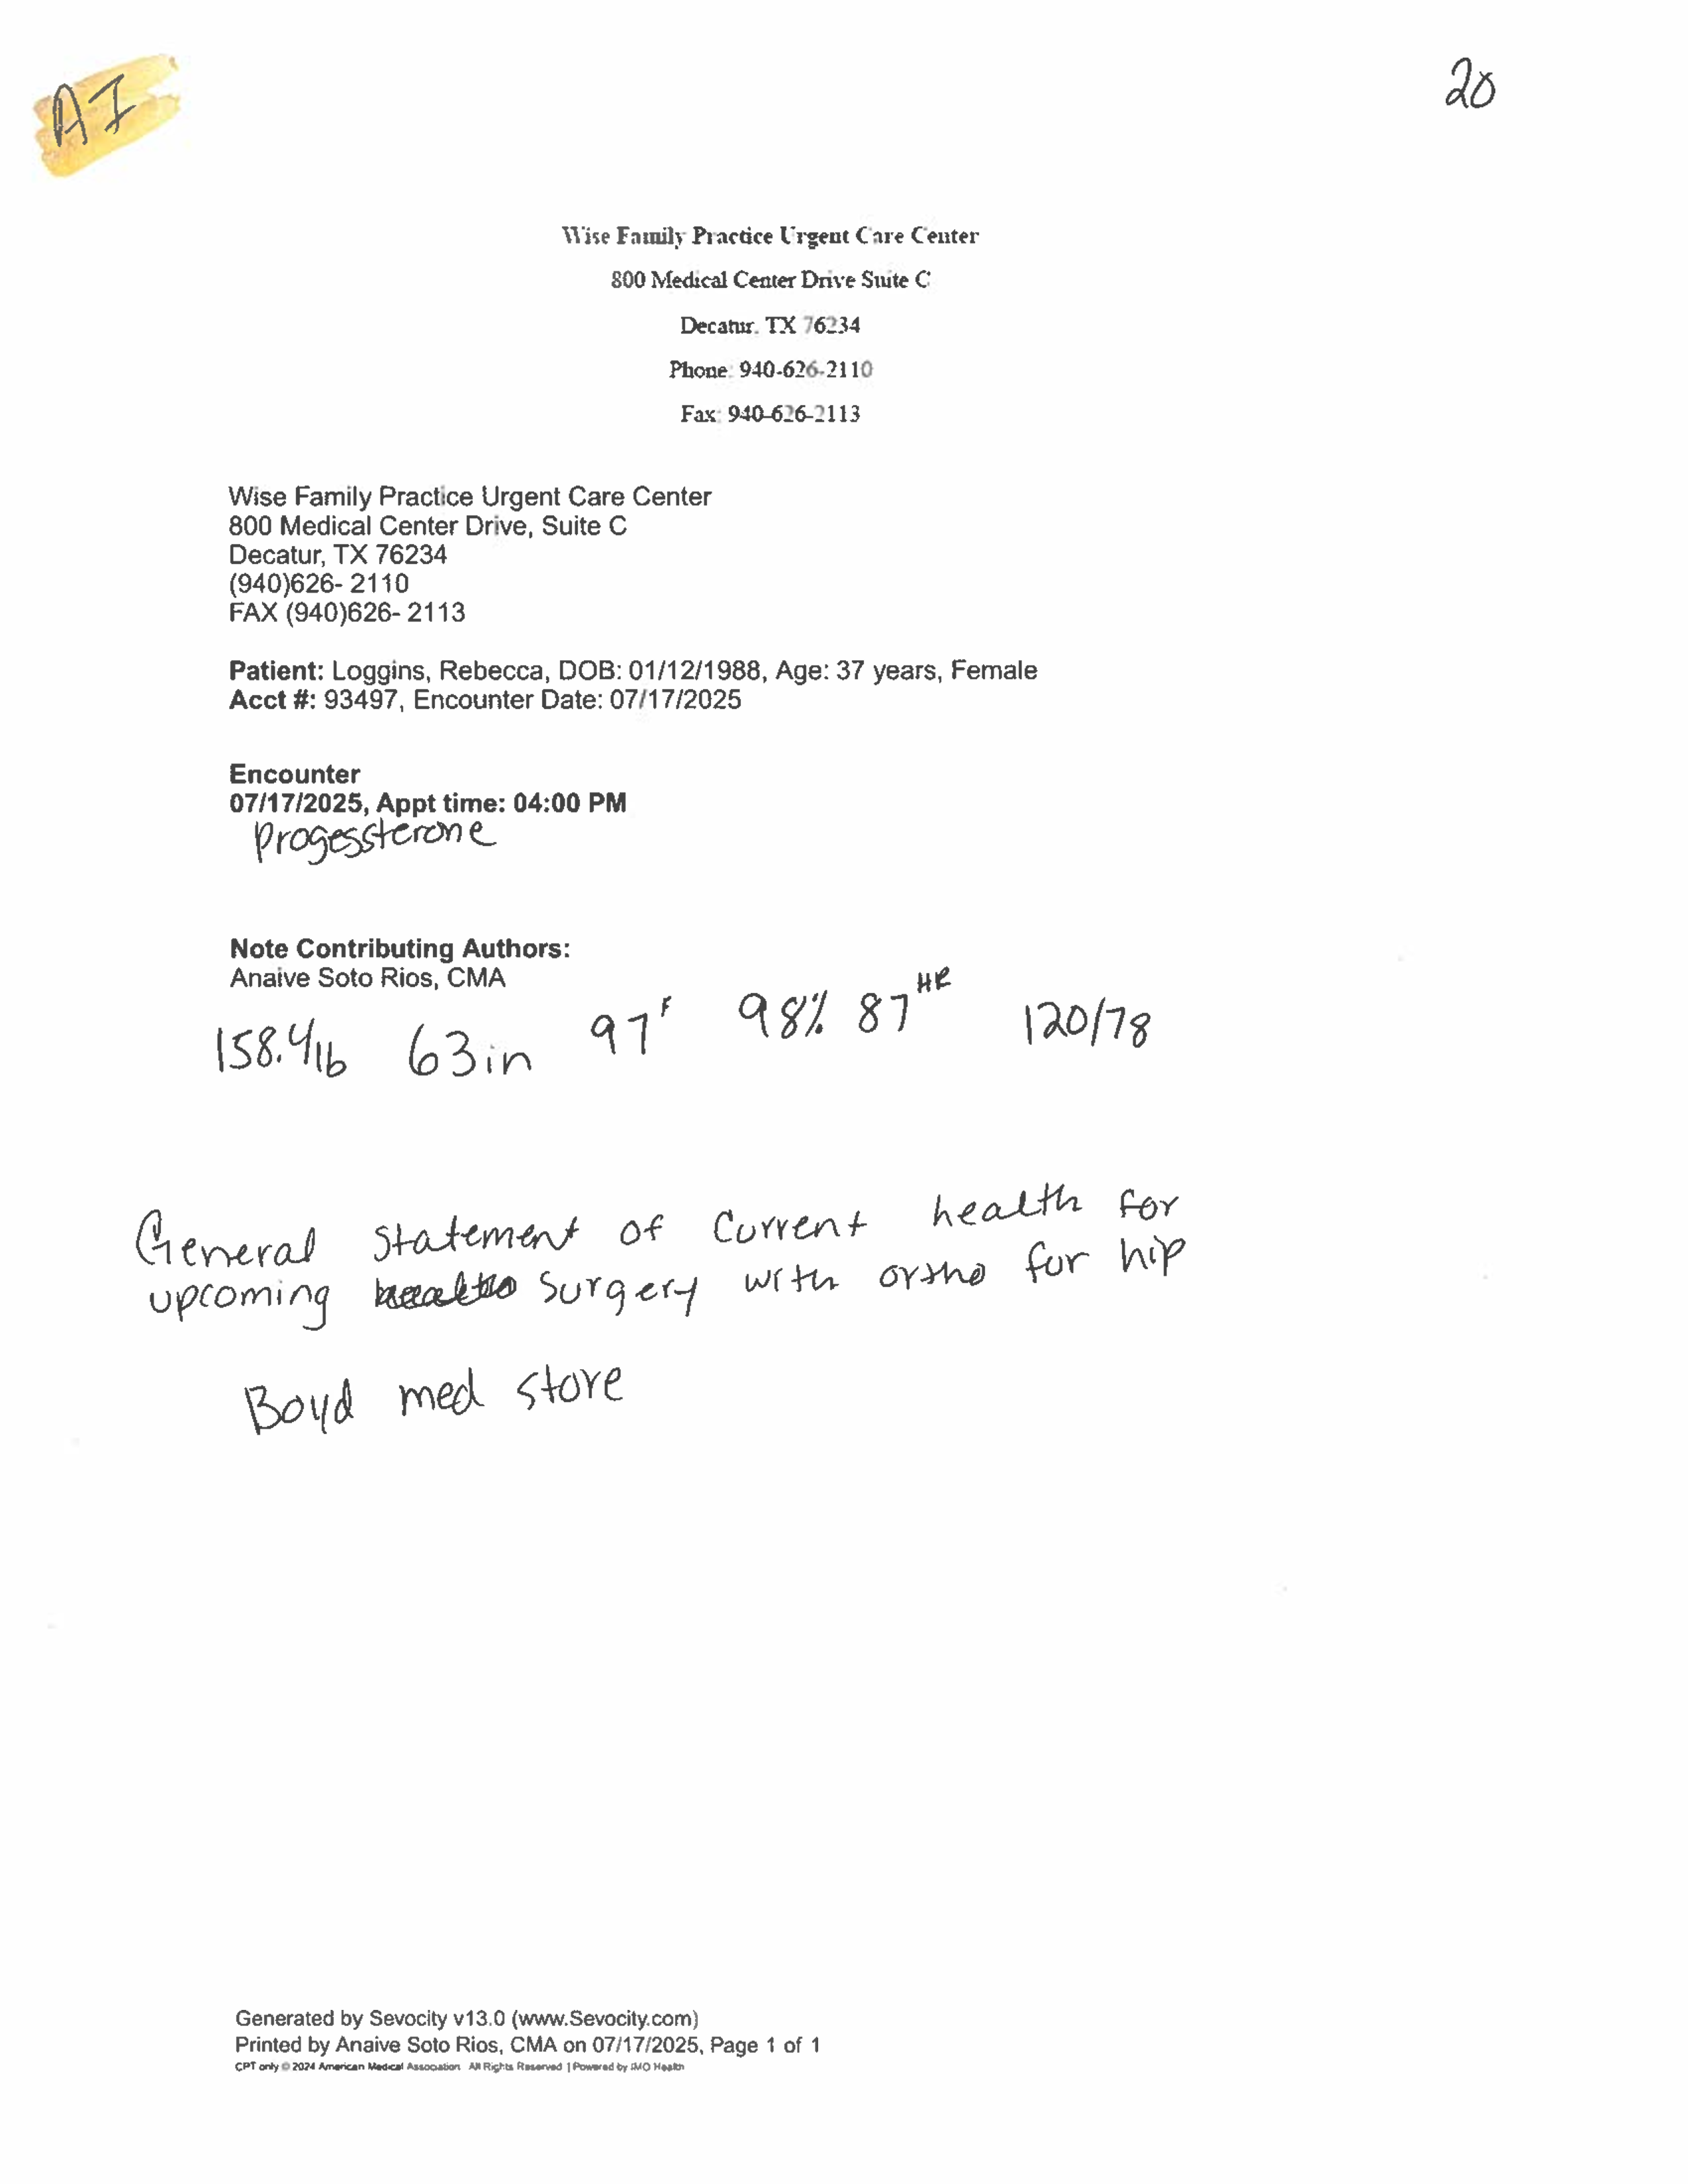 AI
20
Wise Family Practice Urgent Care Center
800 Medical Center Drive Suite C
Decatur, TX 76234
Phone: 940-626-2110
Fax: 940-626-2113
Wise Family Practice Urgent Care Center
800 Medical Center Drive, Suite C
Decatur, TX 76234
(940)626- 2110
FAX (940)626- 2113
Patient: Loggins, Rebecca, DOB: 01/12/1988, Age: 37 years, Female
Acct #: 93497, Encounter Date: 07/17/2025
Encounter
07/17/2025, Appt time: 04:00 PM
Progessterone
Note Contributing Authors:
Anaive Soto Rios, CMA
158.4lb 63in 97F 98% 87HR 120/78
General statement of current health for
upcoming surgery with ortho for hip
Boyd med store
Generated by Sevocity v13.0 (www.Sevocity.com)
Printed by Anaive Soto Rios, CMA on 07/17/2025, Page 1 of 1
CPT only © 2024 American Medical Association All Rights Reserved | Powered by IMO Health